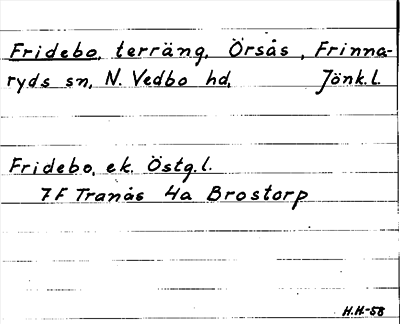 Fridebo, terräng, Örsås, Frinna-
ryds sn, N. Vedbo hd, Jönk.l.
Fridebo, ek. Östg.l.
7F Tranås 4a Brostorp
H.H-58